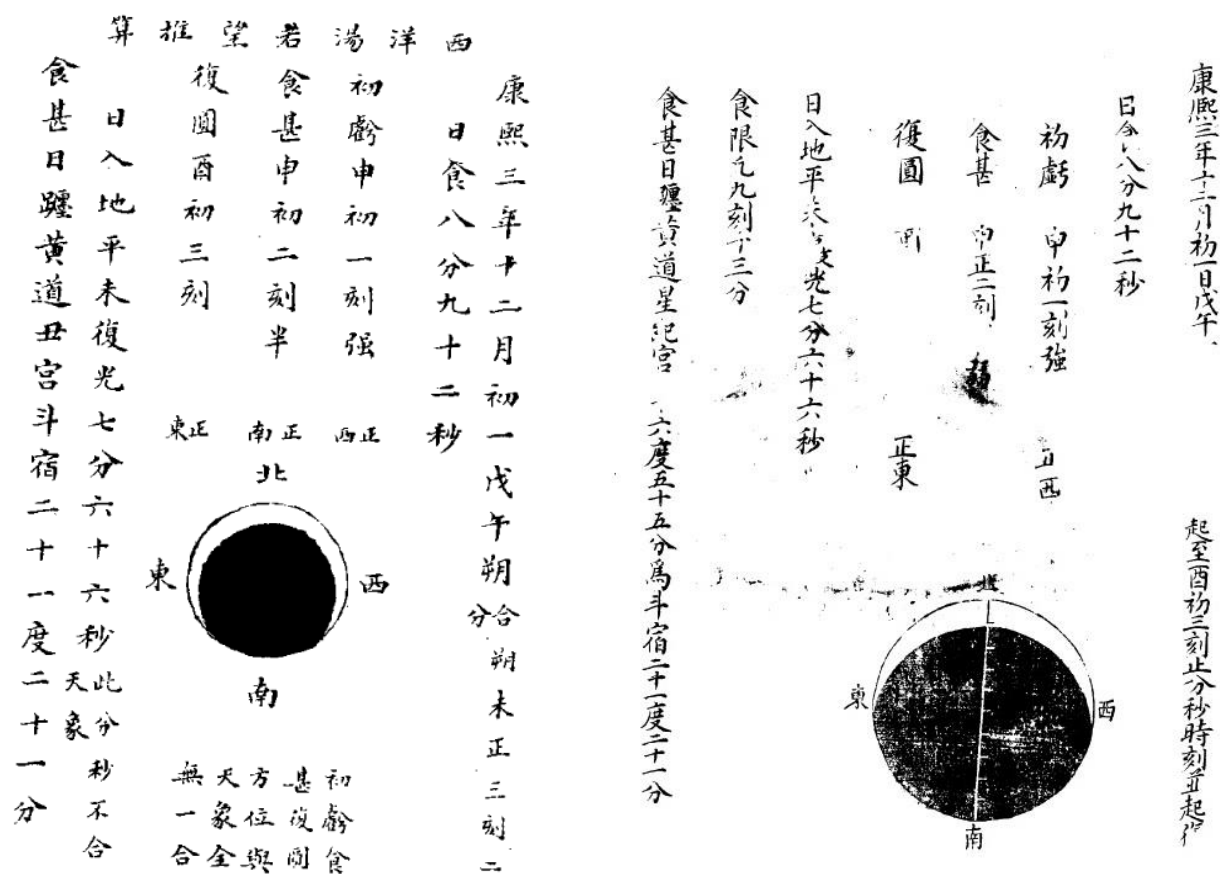 康熙三年十二月初一日戊午
起至酉初三刻止分秒時刻並起復
日食八分九十二秒
初虧 申初一刻強 正西
食甚 申正二刻
復圓 酉 正東
日入地平未復光七分六十六秒
食限乞九刻十三分
食甚日躔黃道星紀宮 六度五十五分為斗宿二十一度二十一分
北
東
西
南
西洋湯若望推算
康熙三年十二月初一戊午朔合朔未正三刻二分
日食八分九十二秒
初虧申初一刻强 正西
食甚申初二刻半 正南
復圓酉初三刻 正東
日入地平未復光七分六十六秒此分秒不合天象
食甚日躔黃道丑宮斗宿二十一度二十一分
北
東
西
南
初虧食
甚復圓
方位與
天象全
無一合